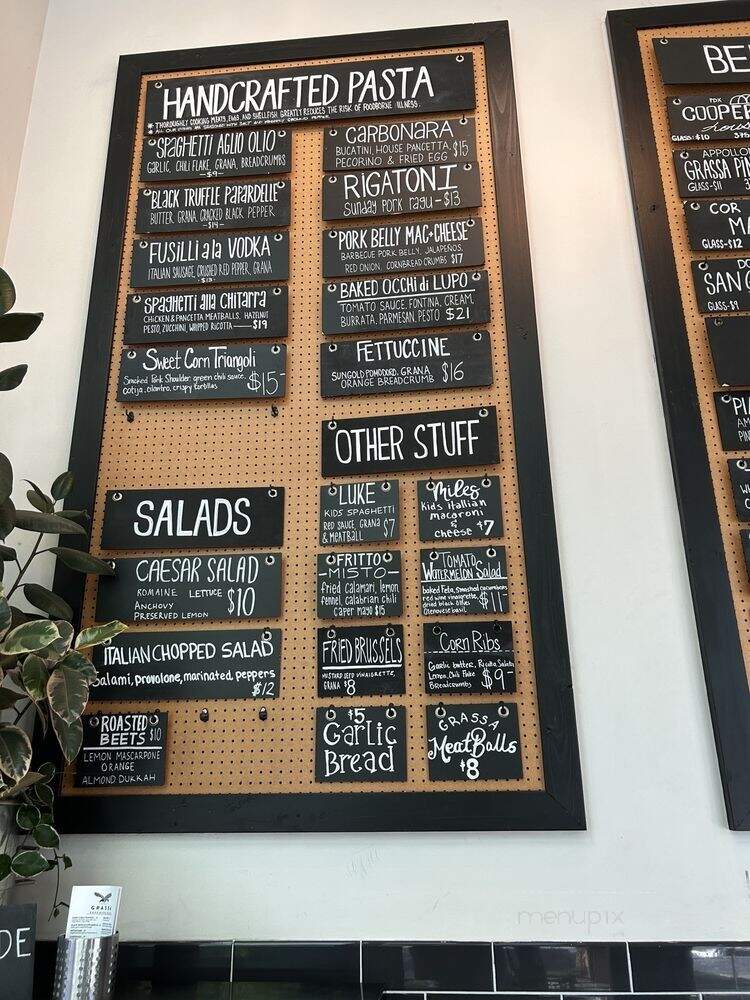 HANDCRAFTED PASTA
* THOROUGHLY COOKING MEATS, EGGS AND SHELLFISH GREATLY REDUCES THE RISK OF FOODBORNE ILLNESS.
SPAGHETTI AGLIO OLIO
GARLIC, CHILI FLAKE, GRANA, BREADCRUMBS
-$9-
BLACK TRUFFLE PAPARDELLE
BUTTER, GRANA, CRACKED BLACK PEPPER
-$14-
FUSILLI a la VODKA
ITALIAN SAUSAGE, CRUSHED RED PEPPER, GRANA
-$13-
SPaGHeTTi alla CHiTarra
CHICKEN & PANCETTA MEATBALLS, HAZELNUT
PESTO, ZUCCHINI, WHIPPED RICOTTA — $19
Sweet Corn Triangoli
Smoked Pork Shoulder, green chili sauce,
cotija, cilantro, crispy tortillas $15-
CARBONARA
BUCATINI, HOUSE PANCETTA,
PECORINO & FRIED EGG $15
RIGATONI
Sunday Pork ragu - $13
PORK BELLY MAC+CHEESE
BARBECUE PORK BELLY, JALAPEÑOS,
RED ONION, CORNBREAD CRUMBS $17
BAKED OCCHI di LUPO
TOMATO SAUCE, FONTINA, CREAM,
BURRATA, PARMESAN, PESTO $21
FETTUCCINE
SUNGOLD POMODORO, GRANA
ORANGE BREADCRUMB $16
SALADS
CAESAR SALAD
ROMAINE LETTUCE
ANCHOVY
PRESERVED LEMON $10
ITALIAN CHOPPED SALAD
Salami, provalone, marinated peppers
$12
ROASTED
BEETS $10
LEMON MASCARPONE
ORANGE
ALMOND DUKKAH
OTHER STUFF
LUKE
KIDS SPAGHETTI
RED SAUCE, GRANA
& MEATBALL $7
Miles
kids itallian
macaroni
&
cheese $7
FRITTO
-MISTO-
fried calamari, lemon,
fennel, calabrian chili
caper mayo $15
TOMATO
WATERMELON Salad
baked feta, smashed cucumbers
red wine vinaigrette,
dried black olives
Genovese basil, $11
FRIED BRUSSELS
MUSTARD SEED VINAIGRETTE,
GRANA $8
CORN RIBS
Garlic butter, Ricotta Salata
Lemon, Chili flake
Breadcrumbs $9-
$5
Garlic
Bread
GRASSA
MeatBalls
$8
BE
PDX
COOPER
GLASS: $10
APPOLLO
GRASSA PIN
GLASS-$11
COR
MA
GLASS-$12
DO
SANG
GLASS-$9
GRASSA
DE
menupix